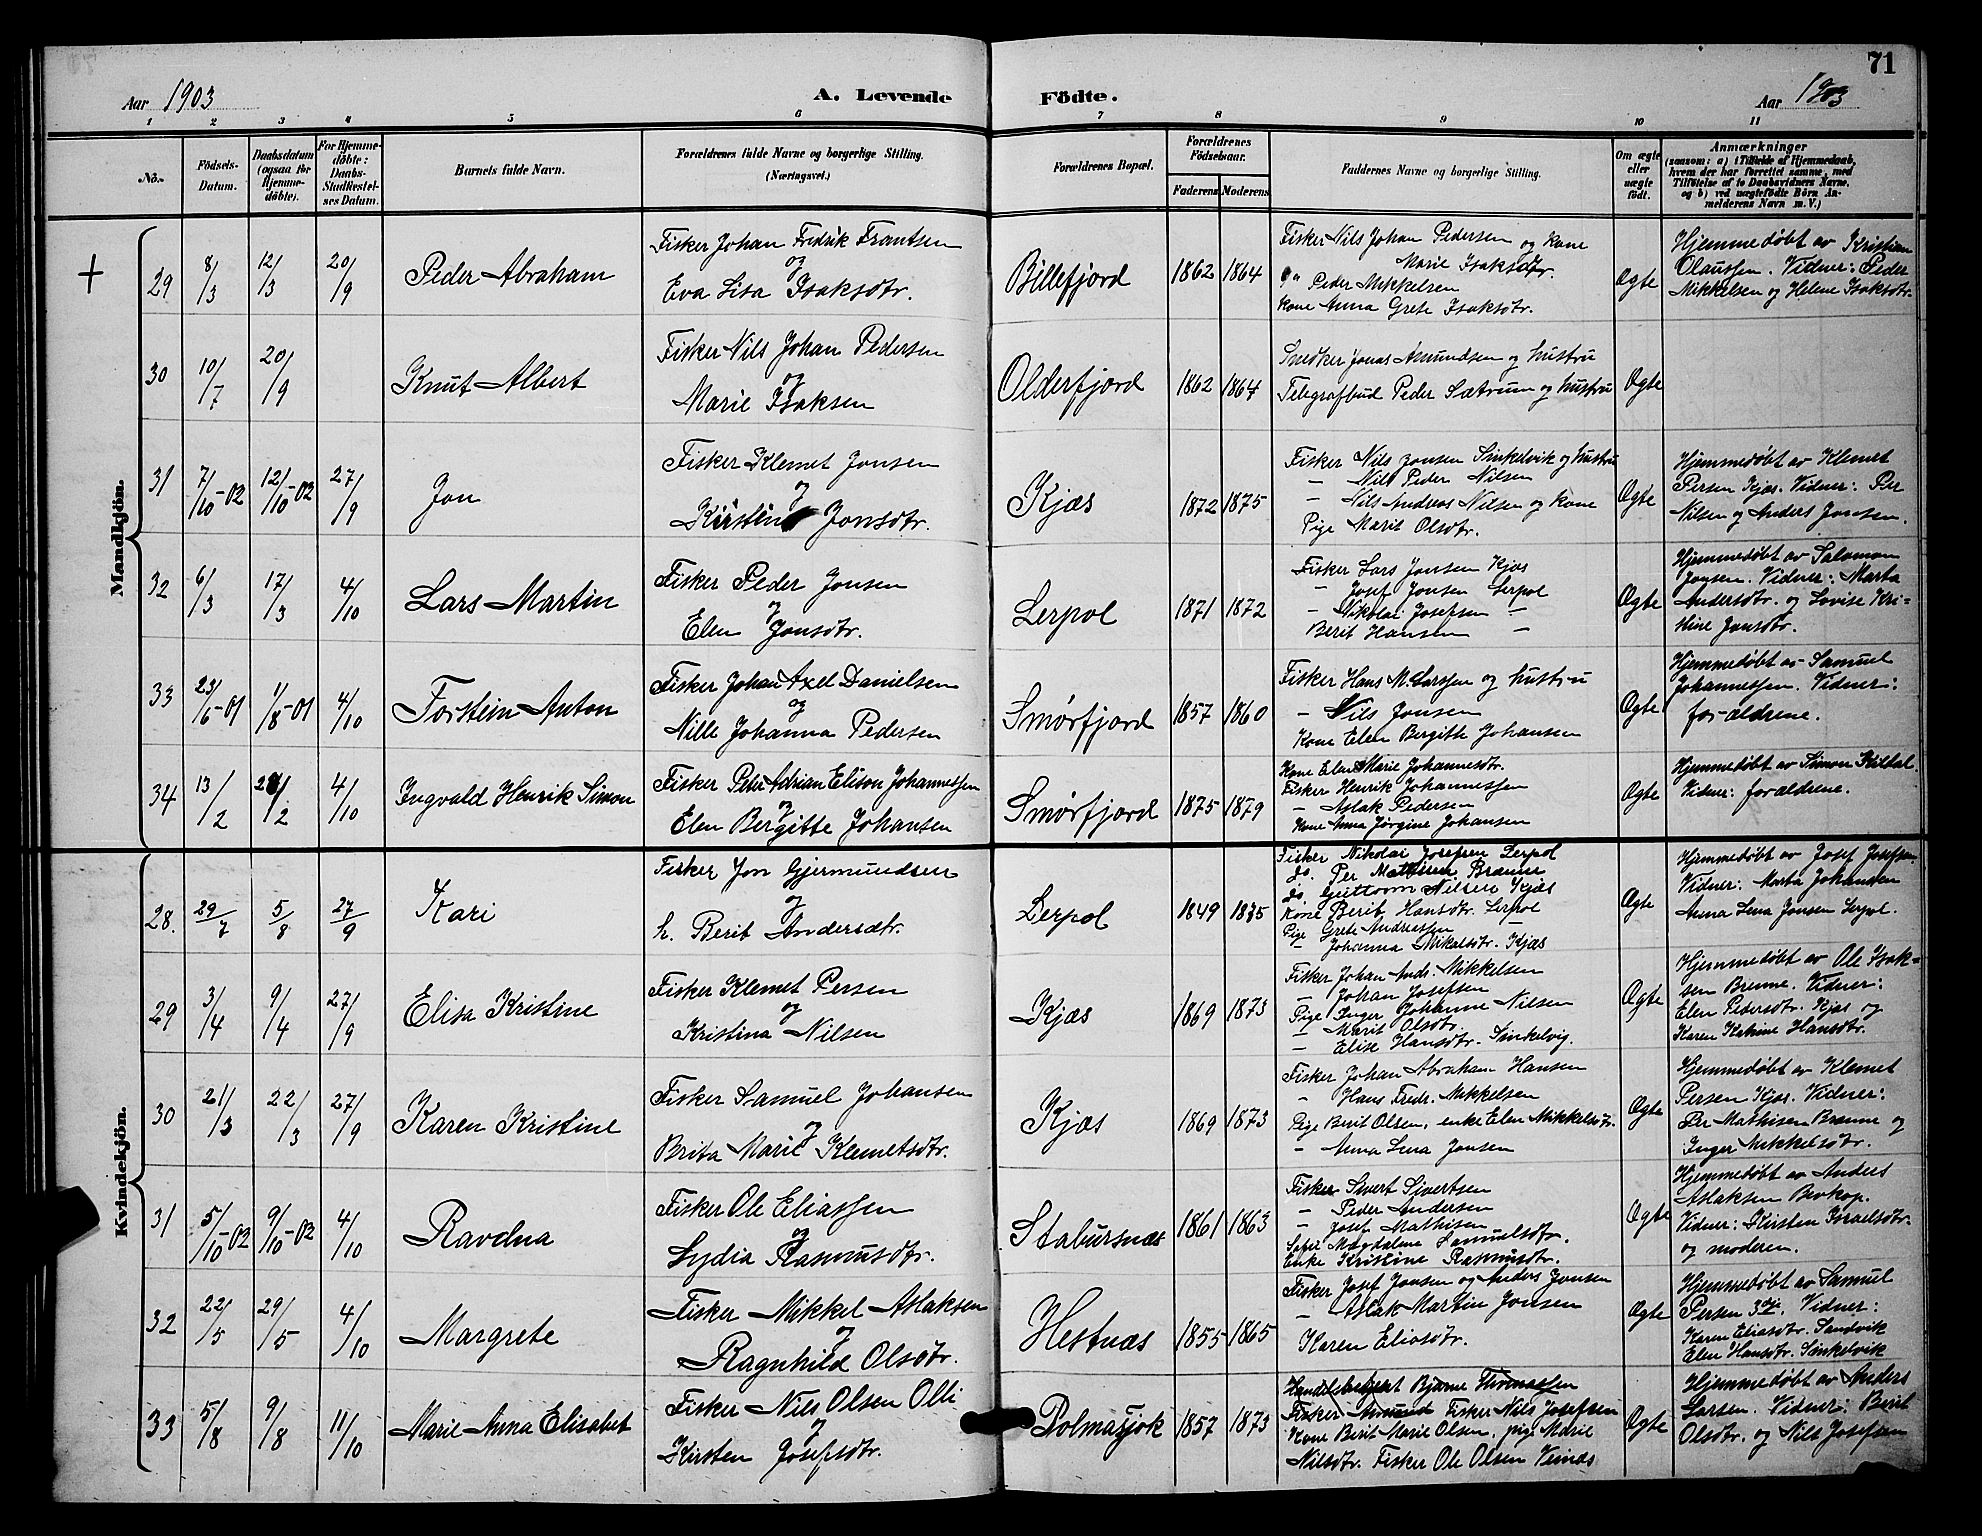 71
Aar 1903
A. Levende Födte.
Aar 1903
1 2 3 4 5 6 7 8 9 10 11
No.
Födsels-
Datum.
Daabsdatum
(ogsaa for
Hjemme-
döbte).
For Hjemme-
døbte:
Daabs-
Stadfæstel-
ses Datum.
Barnets fulde Navn.
Forældrenes fulde Navne og borgerlige Stilling.
(Næringsvei.)
Forældrenes Bopæl.
Forældrenes
Födselsaar.
Faderens Moderens
Faddernes Navne og borgerlige Stilling.
Om ægte
eller
uægte
født.
Anmærkninger
(saasom: a) i Tilfælde af Hjemmedaab,
hvem der har forrettet samme, med
Tilföielse af to Daabsvidners Navne,
og b) ved uægtefödte Börn An-
melderens Navn m. V.)
Mandkjön.
+
29 8/3 12/3 20/9 Peder Abraham
Fisker Johan Fredrik Frantsen
og
Eva Lisa Isaksdtr.
Billefjord 1862 1864
Fisker Nils Johan Pedersen og kone
Marie Isaksdtr.
Peder Mikkelsen
Kone Anna Grete Isaksdtr.
Ægte
Hjemmedøbt av Kristian
Olaussen. Vidner: Peder
Mikkelsen og Helene Isaksdtr.
30 10/7 20/9 Knut Albert
Fisker Nils Johan Pedersen
og
Marie Isaksen
Olderfjord 1862 1864
Snedker Jonas Amundsen og hustru
Telegrafbud Peder Sætrum og hustru
Ægte
31 7/10-02 12/10-02 27/9 Jon
Fisker Klemet Jonsen
og
Kirstine Jonsdtr.
Kjæs 1872 1875
Fisker Nils Jonsen Sinkelvik og hustru
— Nils Peder Nilsen
— Nils Andreas Nilsen og kone
Pige Marit Olsdtr.
Ægte
Hjemmedøbt av Klemet
Persen Kjæs. Vidner: Per
Nilsen og Anders Jonsen.
32 6/3 17/3 4/10 Lars Martin
Fisker Peder Jonsen
og
Elen Jonsdtr.
Lerpol 1871 1872
Fisker Lars Jonsen Kjæs
— Josef Jonsen Lerpol
— Nikolai Josefsen —
Berit Hansen —
Ægte
Hjemmedøbt av Salamon
Jonsen. Vidner: Marta
Andersdtr. og Lovise Kri-
stine Jonsdtr.
33 23/6-01 1/8-01 4/10 Torstein Anton
Fisker Johan Axel Danielsen
og
Nille Johanna Pedersen
Smørfjord 1857 1860
Fisker Hans M. Larssen og hustru
— Nils Jonsen
Kone Elen Bergitte Johansen
Ægte
Hjemmedøbt av Samuel
Johannessen. Vidner:
forældrene.
34 13/2 /2 4/10 Ingvald Henrik Simon
Fisker Peter Adrian Elison Johannessen
og
Elen Bergitte Johansen
Smørfjord 1875 1879
Kone Elen Marie Johannesdtr.
Fisker Henrik Johannessen
— Aslak Pedersen
Kone Anna Jørgine Johansen
Ægte
Hjemmedøbt av Simon
Vidner: forældrene.
Kvindekjön.
28. 29/7 5/8 27/9 Kari
Fisker Jon Gjermundsen
og
h. Berit Andersdtr.
Lerpol 1849
Fisker Nikolai Josefsen Lerpol
do. Per Mathisen Brænne
do. Guttorm Nilsen Kjæs
Kone Berit Hansdtr. Lerpol
Pige Grete Andriassen —
— Johanna Mikalsdtr. Kjæs
Ægte
Hjemmedøbt av Josef Josefsen.
Vidner: Marta Johansen
Anna Lena Jonsen Lerpol.
29 3/4 9/4 27/9 Elisa Kristine
Fisker Klemet Persen
og
Kristina Nilsen
Kjæs 1869 1873
Fisker Johan Andr. Mikkelsen
— Johan Josefsen
Pige Inger Johanne Nilsen
— Marit Olsdtr.
— Elise Hansdtr. Sinkelvig.
Ægte
Hjemmedøbt av Ole Isak-
sen Brenne. Vidner:
Elen Pedersdtr. Kjæs og
Karen Katrine Hansdtr.
30 21/3 22/3 27/9 Karen Kristine
Fisker Samuel Johansen
og
Brita Marie Klemetsdtr.
Kjæs 1869 1873
Fisker Johan Abraham Hansen
" Hans Fredr. Mikkelsen
Pige Berit Olsen, enke Elen Mikkelsdtr.
— Anna Lena Jonsen
Ægte
Hjemmedøbt av Klemet
Persen Kjæs. Vidner:
Per Mathisen Brænne og
Inger Mikkelsdtr.
31 5/10-02 9/10-02 4/10 Ravdna
Fisker Ole Eliassen
og
Lydia Rasmusdtr.
Stabursnæs 1861 1863
Fisker Sivert Sivertsen
— Peder Andersen
— Josef Mathisen
Magdalena Samuelsdtr.
Enke Kristine Rasmusdtr.
Ægte
Hjemmedøbt av Anders
Aslaksen Bevkop.
Vidner: Kirsten Israelsdtr.
og moderen.
32 22/5 29/5 4/10 Margrete
Fisker Mikkel Aslaksen
og
Ragnhild Olsdtr.
Hestnæs 1855 1865
Fisker Josef Jonsen og Anders Jonsen
— Aslak Martin Jonsen
Karen Eliasdtr.
Ægte
Hjemmedøbt av Samuel
Persen Vidner:
Karen Eliasdtr. Sandvik
Elen Hansdtr. Sinkelvik
33 5/8 9/8 11/10 Marie Anna Elisabet
Fisker Nils Olsen Olli
og
Kirsten Josefsdtr.
Polmasjok 1857 1873
Bjarne Thomassen
Fisker Amund Fisker Nils Josefsen
Kone Berit Marie Olsen, pige Marie
Nilsdtr. Fisker Ole Olsen Veines
Ægte
Hjemmedøbt av Anders
Larsen. Vidner: Berit
Olsdtr. og Nils Josefsen